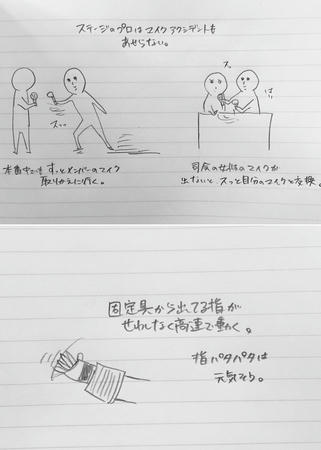 ステージのプロはマイクアクシデントも
あせらない。
スッ
スッ
はい
本番中でもすっとメンバーのマイク
取りかえに行く。
司会の女性のマイクが
出ないとスッと自分のマイクと交換。
固定具から出てる指が
せわしなく高速で動く。
指パタパタは
元気そう。